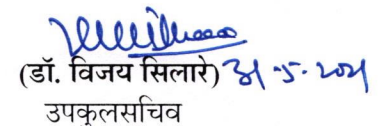 (डॉ. विजय सिलारे) 31-5-2021
उपकुलसचिव